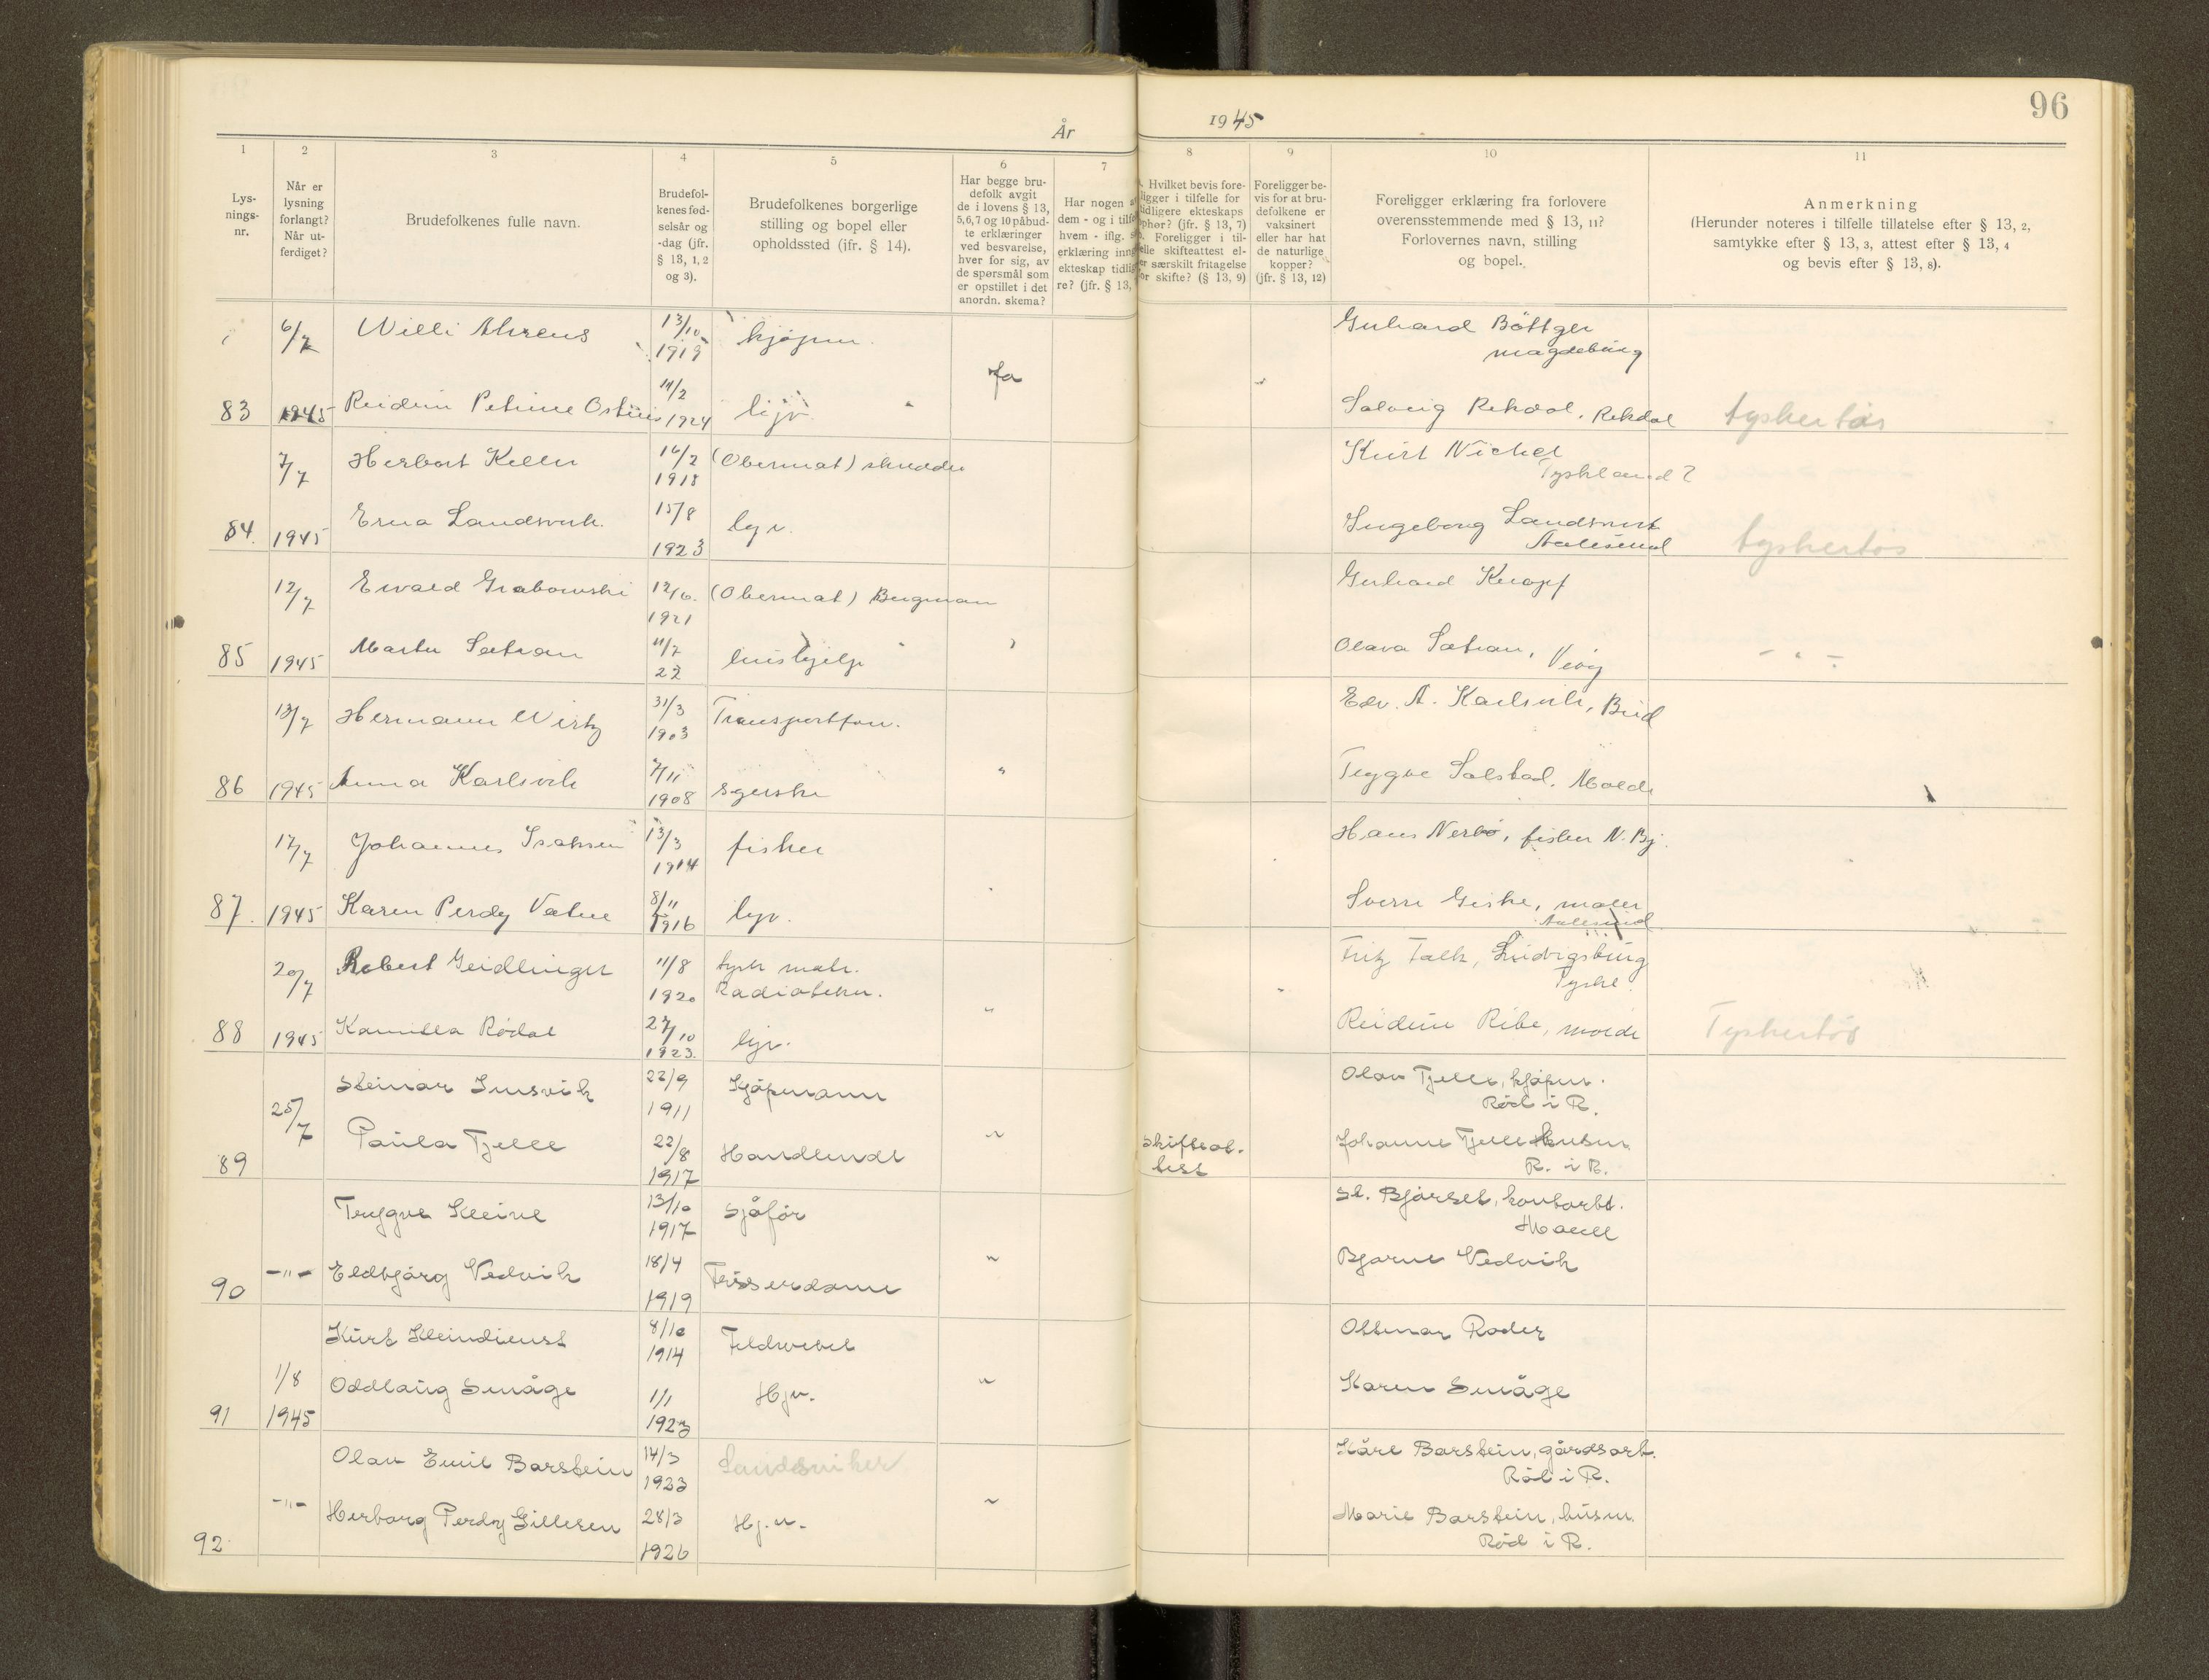 96
År 1945
1 2 3 4 5 6 7 8 9 10 11
Lys-
nings-
nr.
Når er
lysning
forlangt?
Når ut-
ferdiget?
Brudefolkenes fulle navn.
Brudefol-
kenes fød-
selsår og
-dag (jfr.
§ 13, 1, 2
og 3).
Brudefolkenes borgerlige
stilling og bopel eller
opholdssted (ifr. § 14).
Har begge bru-
defolk avgit
de i lovens § 13,
5, 6, 7 og 10 påbud-
te erklæringer
ved besvarelse,
hver for sig, av
de spørsmål som
er opstillet i det
anordn. skema?
Har nogen a
dem - og i tilfe
hvem - iflg. s
erklæring inng
ekteskap tidlig
re? (jfr. § 13,
. Hvilket bevis fore-
ligger i tilfelle for
tidligere ekteskaps
ophør? (jfr. § 13, 7)
b. Foreligger i til-
elle skifteattest el-
er særskilt fritagelse
for skifte? (§ 13, 9)
Foreligger be-
vis for at bru-
defolkene er
vaksinert
eller har hat
de naturlige
kopper?
(jfr. § 13, 12)
Foreligger erklæring fra forlovere
overensstemmende med § 13, 11?
Forlovernes navn, stilling
og bopel.
Anmerkning
(Herunder noteres i tilfelle tillatelse efter § 13, 2,
samtykke efter § 13, 3, attest efter § 13, 4
og bevis efter § 13, 8).
6/7 Willi Ahrens 13/10 1919 kjøpm. Gerhard Böttger
Magdeburg
Ja
83 1945 Reidun Petrine 11/2 1924 hjv. Solveig Rekdal, Rekdal tyskertøs
7/7 Herbert Keller 16/2 1918 (Obermat) skredder Kurt Nickel
Tyskland?
84. 1945 Erna Landsverk. 15/8 1923 hjv. Ingeborg Landsverk
Aalesund tyskertøs
12/7 Ewald Grabowski 12/6. 1921 (Obermat) Bergmann Gerhard Knopf
85 1945 Marta Sætran 11/7 22 hushjelp " Olava Sætran, Veøy - " -
13/7 Hermann Wirtz 31/3 1903 Transportfør. Edv. A. Karlsvik, Bud
86 1945 Anna Karlsvik 7/11 1908 syerske " Trygve Solstad, Molde
17/7 Johannes Isaksen 13/3 1914 fisker Hans Nerbø, fisker N. Bj.
87. 1945 Karen Perdy Vatne 8/11 1916 hjv. Sverre Giske, maler
Aalesund
20/7 Robert Geidlinger 11/8 1920 tysk matr.
Radiotekn. Fritz Falk, Ludvigsburg
Tyskl.
88 1945 Kamilla Rødal 27/10 1923. hjv. " Reidun Ribe, Molde Tyskertøs
25/7 Steinar Insvik 22/9 1911 Kjøpmann Olav Tjelle, kjøpm.
Rød i R.
89 Paula Tjelle 22/8 1917 Handlende " Skifteat-
test Johanne Tjelle husm.
R. i R.
Trygve Kleive 13/10 1917 Sjåfør Sl. Bjørset, kontorbt.
90 -"- Eldbjørg Vedvik 18/4 1919 Friserdame " Bjarne Vedvik
Kurt Kleindienst 8/10 1914 Feldwebel Ottmar Roder
91 1/8 1945 Oddlaug Småge 1/1 1923 Hjv. " Karen Småge
Olav Emil Barstein 14/3 1923 Landsviker Kåre Barstein, gårdsarb.
Rød i R.
92 -"- Herborg Perdy Gillesen 28/3 1926 Hj.v. " Marie Barstein, husm.
Rød i R.